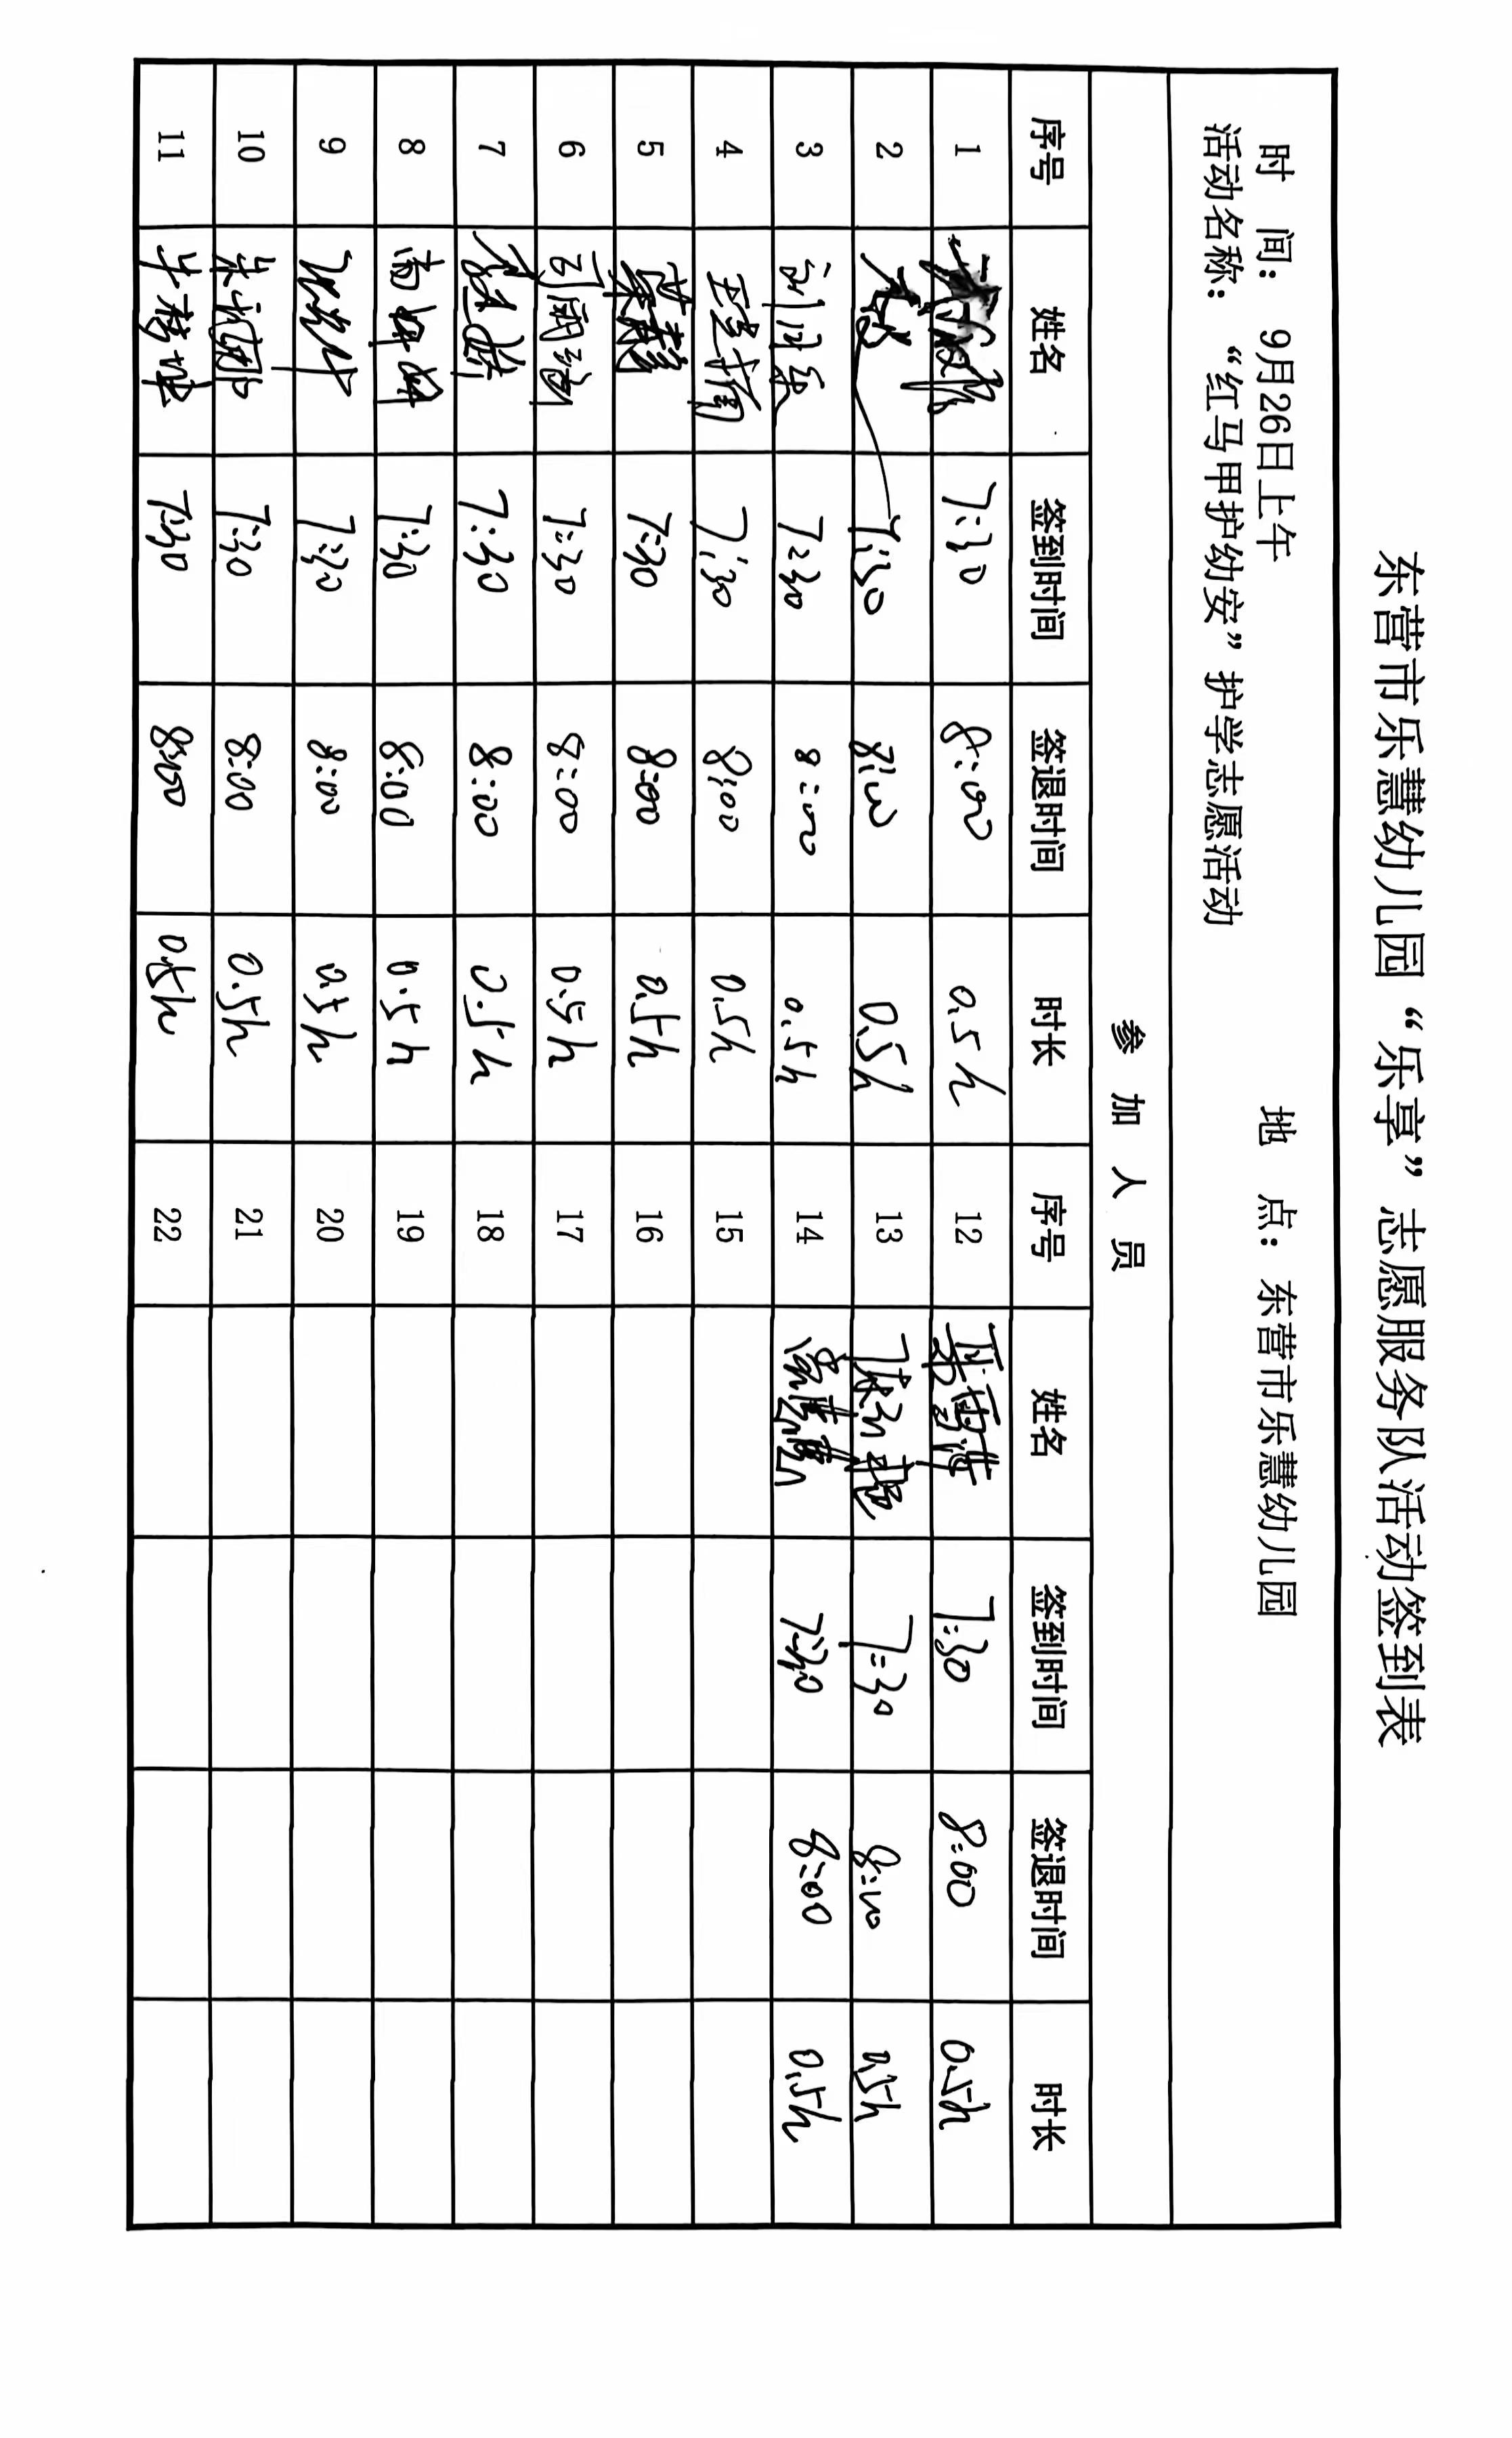 东营市乐慧幼儿园“乐享”志愿服务队活动签到表
时 间： 9月26日上午 地 点：东营市乐慧幼儿园
活动名称：“红马甲护幼安”护学志愿活动
参 加 人 员
序号 姓名 签到时间 签退时间 时长 序号 姓名 签到时间 签退时间 时长
1 7:30 8:00 0.5h 12 7:30 8:00 0.5h
2 7:30 8:00 0.5h 13 7:30 8:00 0.5h
3 7:30 8:00 0.5h 14 7:30 8:00 0.5h
4 7:30 8:00 0.5h 15
5 7:30 8:00 0.5h 16
6 7:30 8:00 0.5h 17
7 7:30 8:00 0.5h 18
8 尚婷婷 7:30 8:00 0.5h 19
9 7:30 8:00 0.5h 20
10 7:30 8:00 0.5h 21
11 7:30 8:00 0.5h 22